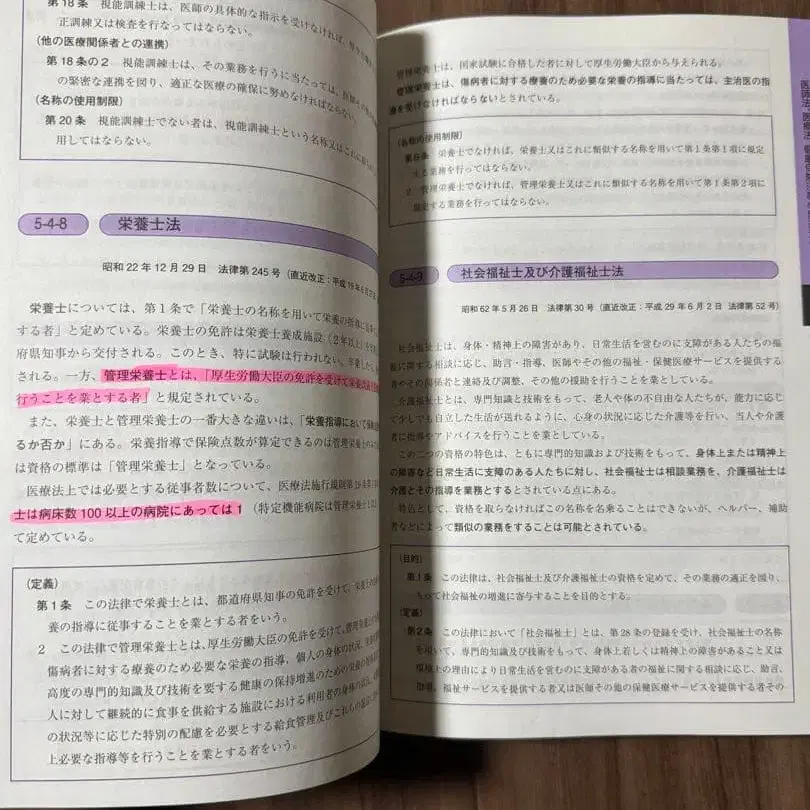 第18条 視能訓練士は、医師の具体的な指示を受けなければ、
正訓練又は検査を行なってはならない。
(他の医療関係者との連携)
第18条の2 視能訓練士は、その業務を行うに当たっては、医師
の緊密な連携を図り、適正な医療の確保に努めなければならない。
(名称の使用制限)
第20条 視能訓練士でない者は、視能訓練士という名称又はこれに
用してはならない。
5-4-8 栄養士法
昭和22年12月29日 法律第245号(直近改正:平成19年6月27日
栄養士については、第1条で「栄養士の名称を用いて栄養の指導に従事
する者」と定めている。栄養士の免許は栄養士養成施設(2年以上)を
府県知事から交付される。このとき、特に試験は行われない。
される。一方、管理栄養士とは、「厚生労働大臣の免許を受けて
行うことを業とする者」と規定されている。
また、栄養士と管理栄養士の一番大きな違いは、「栄養指導において
るか否か」にある。栄養指導で保険点数が算定できるのは管理栄養士の
は資格の標準は「管理栄養士」となっている。
医療法上では必要とする従事者数について、医療法施行規則第19条
士は病床数100以上の病院にあっては1(特定機能病院は管理栄養士1
て定めている。
(定義)
第1条 この法律で栄養士とは、都道府県知事の免許を受けて、
養の指導に従事することを業とする者をいう。
2 この法律で管理栄養士とは、厚生労働大臣の免許を受けて、
傷病者に対する療養のため必要な栄養の指導、個人の身体の状況、
高度の専門的知識及び技術を要する健康の保持増進のための栄養の
人に対して継続的に食事を供給する施設における利用者の身体の
の状況等に応じた特別の配慮を必要とする給食管理及びこれらの
上必要な指導等を行うことを業とする者をいう。
管理栄養士は、国家試験に合格した者に対して厚生労働大臣から与えられる。
管理栄養士は、傷病者に対する療養のため必要な栄養の指導に当たっては、主治医の指
導を受けなければならないとされている。
(名称の使用制限)
第6条 栄養士でなければ、栄養士又はこれに類似する名称を用いて第1条第1項に規定
する業務を行ってはならない。
2 管理栄養士でなければ、管理栄養士又はこれに類似する名称を用いて第1条第2項に
規定する業務を行ってはならない。
5-4-9 社会福祉士及び介護福祉士法
昭和62年5月26日 法律第30号(直近改正:平成29年6月2日 法律第52号)
社会福祉士は、身体・精神上の障害があり、日常生活を営むのに支障がある人たちの福
祉に関する相談に応じ、助言・指導、医師やその他の福祉・保健医療サービスを提供する
者やその関係者と連絡及び調整、その他の援助を行うことを業としている。
介護福祉士とは、専門知識と技術をもって、老人や体の不自由な人たちが、能力に応じ
て少しでも自立した生活が送れるように、心身の状況に応じた介護等を行い、当人や介護
者に指導やアドバイスを行うことを業としている。
この二つの資格の特色は、ともに専門的知識および技術をもって、身体上または精神上
の障害など日常生活に支障のある人たちに対し、社会福祉士は相談業務を、介護福祉士は
介護とその指導を業務とするとされている点にある。
特色として、資格を取らなければこの名称を名乗ることはできないが、ヘルパー、補助
者などによって類似の業務をすることは可能とされている。
(目的)
第1条 この法律は、社会福祉士及び介護福祉士の資格を定めて、その業務の適正を図り、
もって社会福祉の増進に寄与することを目的とする。
(定義)
第2条 この法律において「社会福祉士」とは、第28条の登録を受け、社会福祉士の名称
を用いて、専門的知識及び技術をもって、身体上若しくは精神上の障害があること又は
環境上の理由により日常生活を営むのに支障がある者の福祉に関する相談に応じ、助言、
指導、福祉サービスを提供する者又は医師その他の保健医療サービスを提供する者その